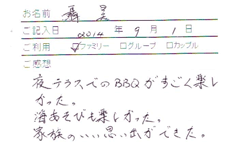 お名前
ご記入日 2014 年 9 月 1 日
ご利用 ☑ファミリー □グループ □カップル
ご感想
夜テラスでのBBQがすごく楽し
かった。
海あそびも楽しかった。
家族のいい思い出ができた。